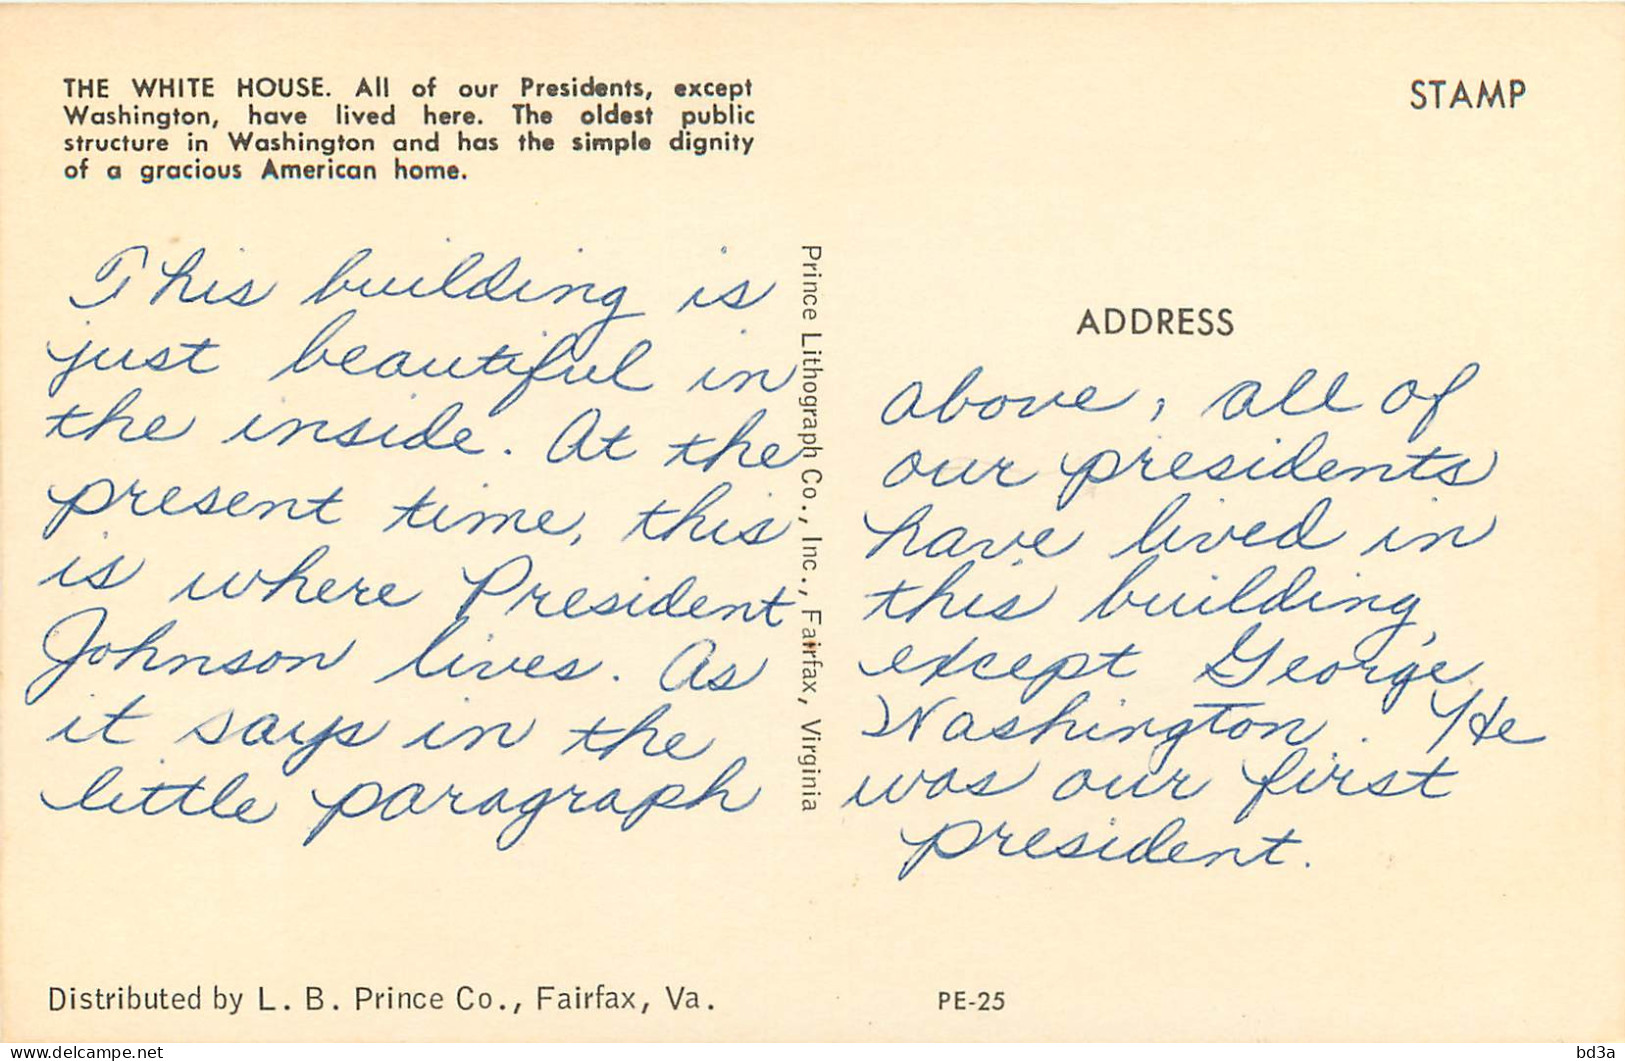 THE WHITE HOUSE. All of our Presidents, except
Washington, have lived here. The oldest public
structure in Washington and has the simple dignity
of a gracious American home.
This building is
just beautiful in
the inside. At the
present time, this
is where President
Johnson lives. As
it says in the
little paragraph
Prince Lithograph Co., Inc., Fairfax, Virginia
STAMP
ADDRESS
above, all of
our presidents
have lived in
this building,
except George
Washington. He
was our first
president.
Distributed by L. B. Prince Co., Fairfax, Va.
PE-25
www.delcampe.net
bd3a